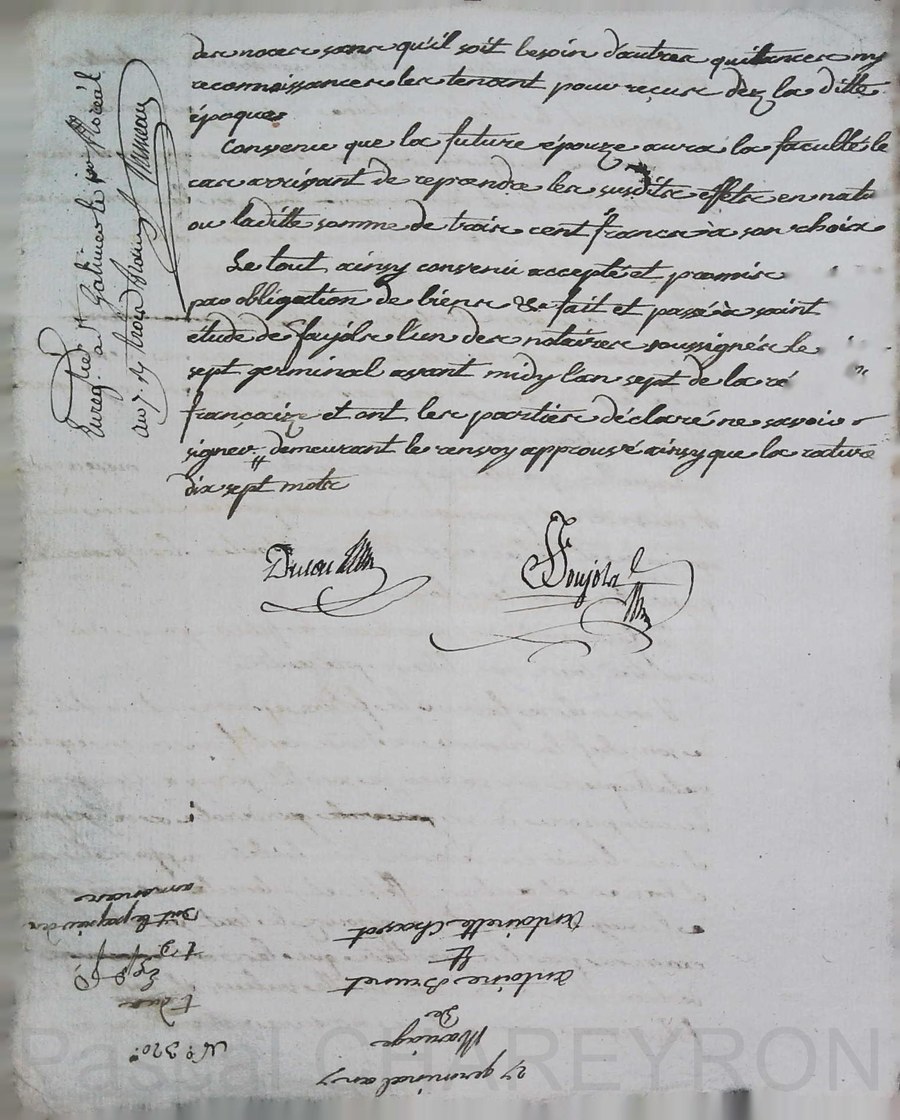 des noces sans qu'il soit besoin d'autres quittances ny
reconnaissances les tenant pour reçus dez la ditte
époque
Convenu que la future épouze aura la faculté le
cas arrivant de reprendre les susdits effets en natu
ou laditte somme de trois cent francs à son choix
Le tout ainsy convenu accepté et promis
par obligation de biens &a fait et passé à saint
étude de Faujols l'un des notaires soussignés le
sept germinal avant midy l'an sept de la ré
française et ont les parties déclaré ne savoir
signer demeurant le renvoy approuvé ainsy que la rature
dix sept mots
Faujols
Enregistré a St Galmier le floréal
an 7
27 germinal an 7
Mariage
De
antoine Brunet
et
antoinette Chassot
N° 320
amendes
Pascal CHAREYRON